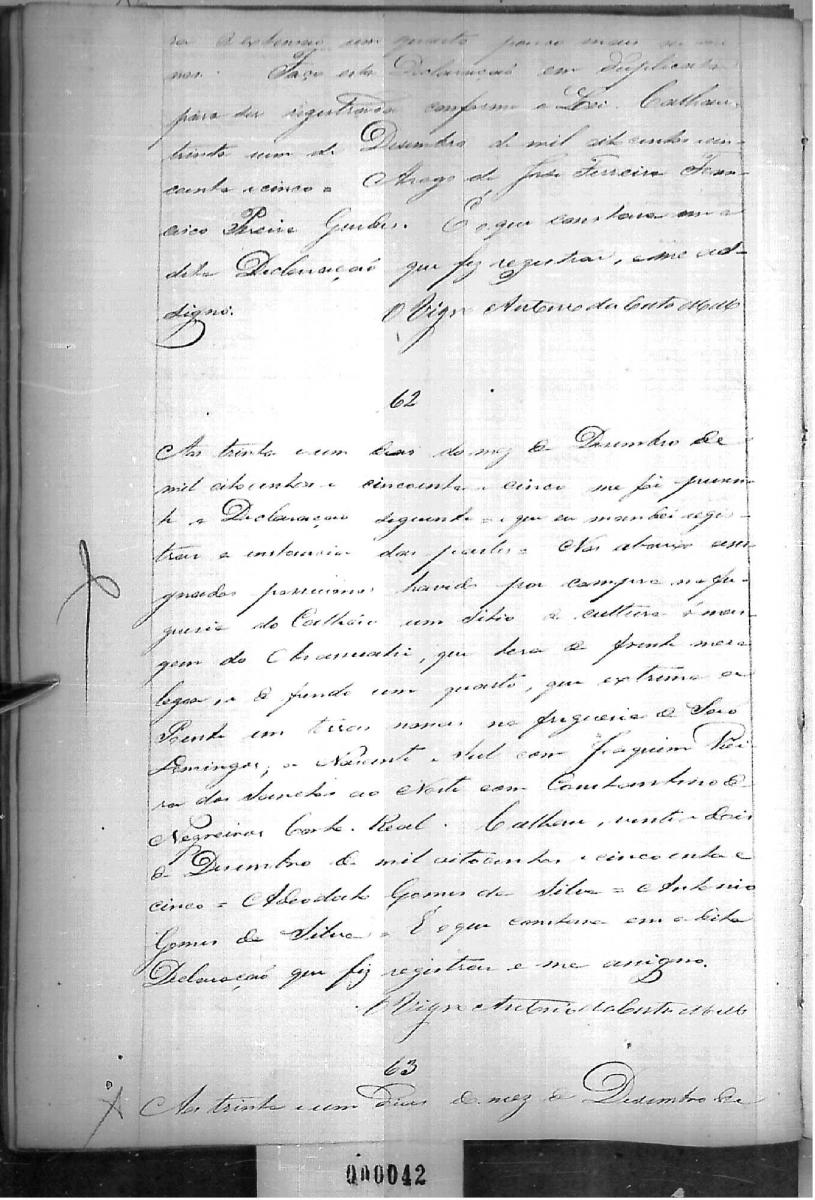 ra e extensão um quarto pouco mais ou me-
nos. Faço esta Declaração em duplicata
para ser registrada conforme a Lei. Calhau,
trinta e um de Desembro de mil oito centos e cin-
coenta e cinco = Arogo de João Ferreira Fran-
cisco Guedes. É o que constava em a
dita Declaração que fiz registrar, e me as-
signo. O Vigr.o Antonio da Costa
62
Aos trinta e um dias do mez de Desembro de
mil oitocentos e cincoenta e cinco me foi presen-
te a Declaração seguinte = que eu mandei regis-
trar a instancia das partes = Nós abaixo assi-
gnados possuimos havido por compra na fre-
guesia do Calháo um sitio de cultura á mar-
gem do que tera de frente meia
legoa, e de fundo um quarto, que extréma ao
Poente em terras nossas na freguesia de São
Domingos, ao Nascente e Sul com Joaquim Perei-
ra dos Santos ao Norte com Constantino de
Negreiros Corte Real. Calhau, vinte e dois
de Desembro de mil oitocentos e cincoenta e
cinco = Adeodato Gomes da Silva = Antonio
Gomes da Silva = É o que continha em a dita
Declaração que fiz registrar e me assigno.
O Vigr.o Antonio da Costa
63
Aos trinta e um dias do mez de Desembro de
000042